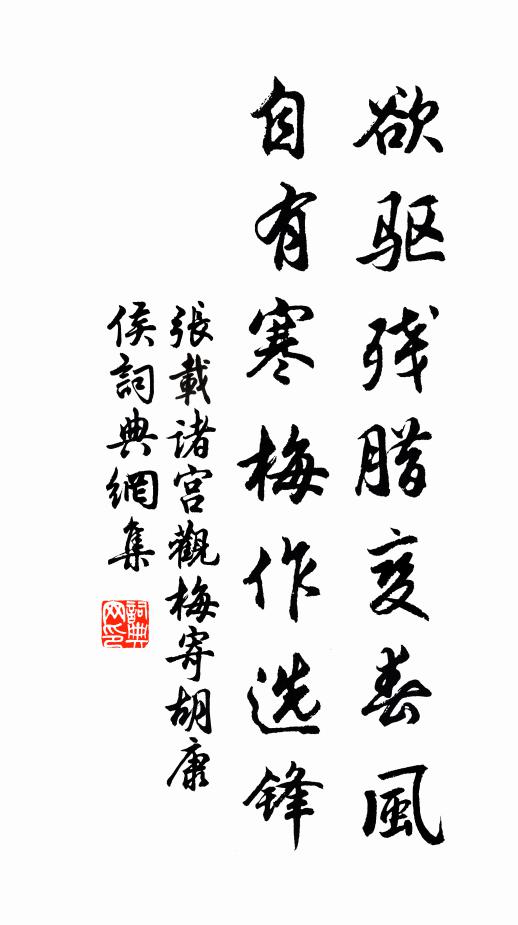 欲驱残腊变春風
自有寒梅作选锋
張載诸宫觀梅寄胡康
侯詞典網集
詞典网印